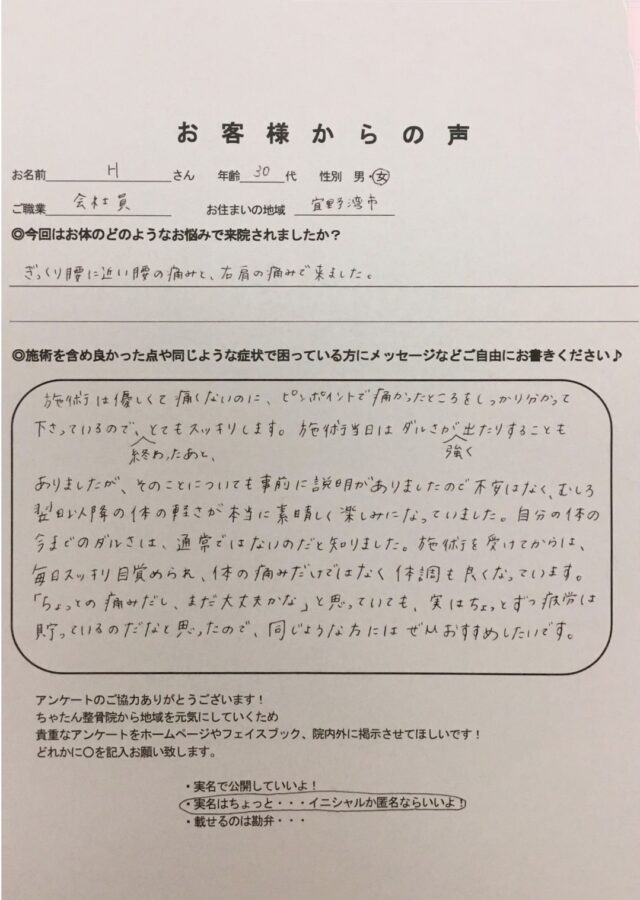 お客様からの声
お名前 H さん 年齢 30 代 性別 男・女
ご職業 会社員 お住まいの地域 宜野湾市
◎今回はお体のどのようなお悩みで来院されましたか？
ぎっくり腰に近い腰の痛みと、右肩の痛みで来ました。
◎施術を含め良かった点や同じような症状で困っている方にメッセージなどご自由にお書きください♪
施術は優しくて痛くないのに、ピンポイントで痛かったところをしっかり分かって
下さっているので、とてもスッキリします。施術当日はダルさが出たりすることも
終わったあと、 強く
ありましたが、そのことについても事前に説明がありましたので不安はなく、むしろ
翌日以降の体の軽さが本当に素晴しく楽しみになっていました。自分の体の
今までのダルさは、通常ではないのだと知りました。施術を受けてからは、
毎日スッキリ目覚められ、体の痛みだけではなく体調も良くなっています。
「ちょっとの痛みだし、まだ大丈夫かな」と思っていても、実はちょっとずつ疲労は
貯っているのだなと思ったので、同じような方にはぜひおすすめしたいです。
アンケートのご協力ありがとうございます！
ちゃたん整骨院から地域を元気にしていくため
貴重なアンケートをホームページやフェイスブック、院内外に掲示させてほしいです！
どれかに〇を記入お願い致します。
・実名で公開していいよ！
・実名はちょっと・・・イニシャルか匿名ならいいよ！
・載せるのは勘弁・・・